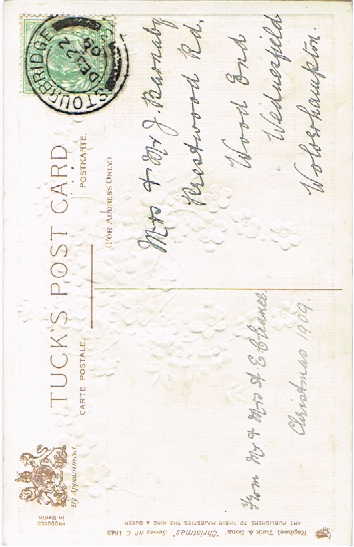 TUCK'S POST CARD
CARTE POSTALE.
POSTKARTE.
(FOR ADDRESS ONLY)
STOURBRIDGE
DE 22
By Appointment
PRODUCED
in Berlin
Mrs & Mr J. Barnaby
Prestwood Rd.
Wood End
Wednesfield
Wolverhampton.
From Mr & Mrs H E Chance
Christmas 1909.
Raphael Tuck & Sons
"Christmas" Series Nº C
ART PUBLISHERS TO THEIR MAJESTIES THE KING & QUEEN